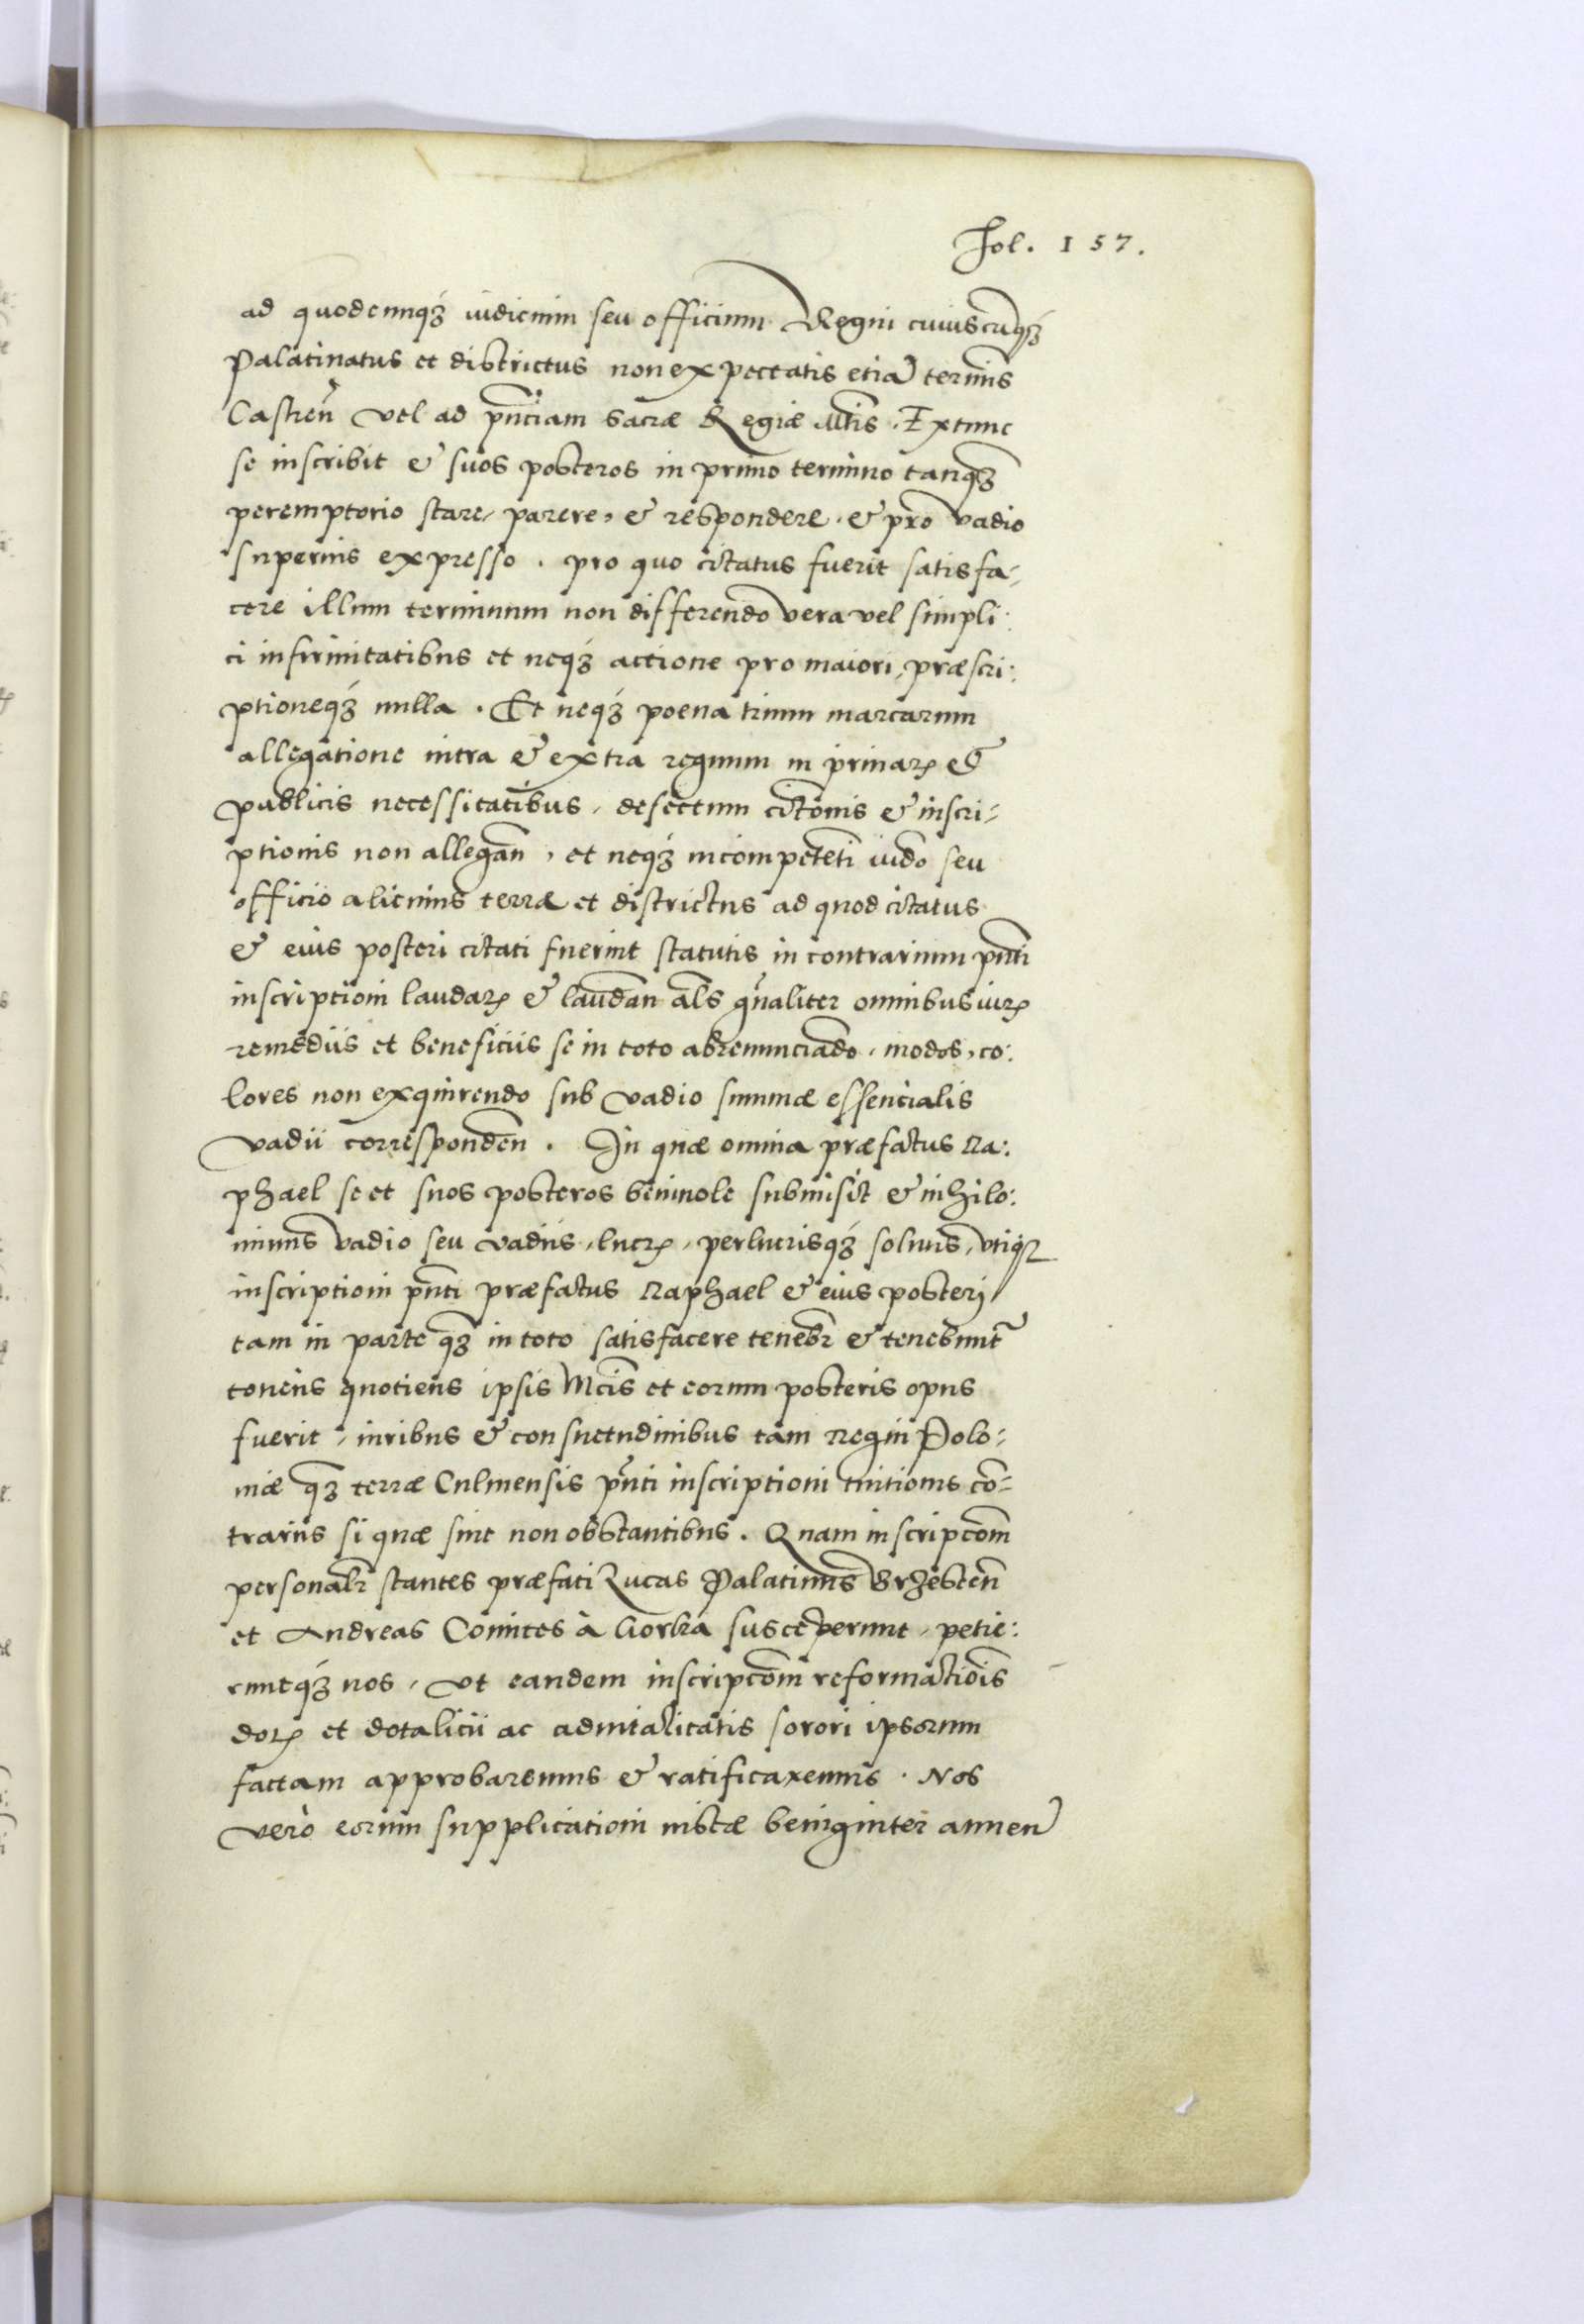 Fol. 157.
ad quodcunqȝ iudicium seu officium Regni cuiuscūqȝ
Palatinatus et districtus non expectatis etiā terminis
Castren̄ vel ad pn̄ciam Sacræ Regiæ Mtis. Extunc
se inscribit & suos posteros in primo termino tanqȝ
peremptorio stare, parere, & respondere. & pro vadio
superius expresso. pro quo citatus fuerit satisfa-
cere illum terminum non differendo vera vel simpli:
ci infirmitatibus et neqȝ actione pro maiori, præscri:
ptioneqȝ nulla. Et neqȝ poena trium marcarum
allegatione intra & extra regnum in priuatꝭ &
publicis necessitatibus, defectum citōnis & inscri-
ptionis non allegan̄, et neqȝ incompetēti iudō seu
officio alicuius terræ et districtus ad quod citatus
& eius posteri citati fuerint statutis in contrarium pn̄ti
inscriptioni laudatꝭ & laudan̄ als gn̄aliter omnibus iurꝭ
remediis et beneficiis se in toto abrenunciādo, modos, co:
lores non exquirendo sub vadio summæ essencialis
vadii corresponden̄. In quæ omnia præfatus Ra:
phael se et suos posteros beniuole submisit & nihilo:
minus vadio seu vadiis, lucrꝭ, perlucrisqȝ solutis, vtiqȝ
inscriptioni pn̄ti præfatus Raphael & eius posteri
tam in parte qȝ in toto satisfacere tenebr̄ & tenebunt̄
toties quotiens ipsis Mcis et eorum posteris opus
fuerit, iuribus & consuetudinibus tam Regni Polo-
niæ qȝ terræ Culmensis pn̄ti inscriptioni tuitionis cō-
trariis si quæ sint non obstantibus. Quam inscripcōm
personalr̄ stantes præfati Lucas Palatinus Brzesten̄
et Andreas Comites à Gorka susceperunt, petie:
runtqȝ nos, vt eandem inscripcōm reformatiōis
dotꝭ et dotalicii ac aduitalitatis sorori ipsorum
factam approbaremus & ratificaremus. Nos
verò eorum supplicationi iustæ benigniter annuen̄